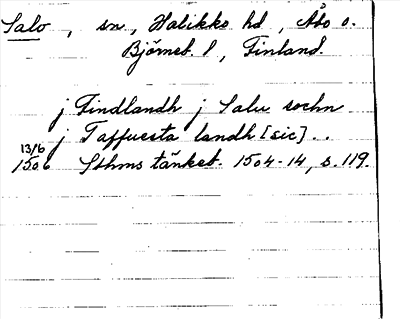 Salo, sn, Halikko hd, Åbo o.
Björneb. l, Finland.
j Findlandh j Salu sochn
j Taffuesta landh [sic] . .
13/6
1506 Sthms tänkeb. 1504-14, s. 119.